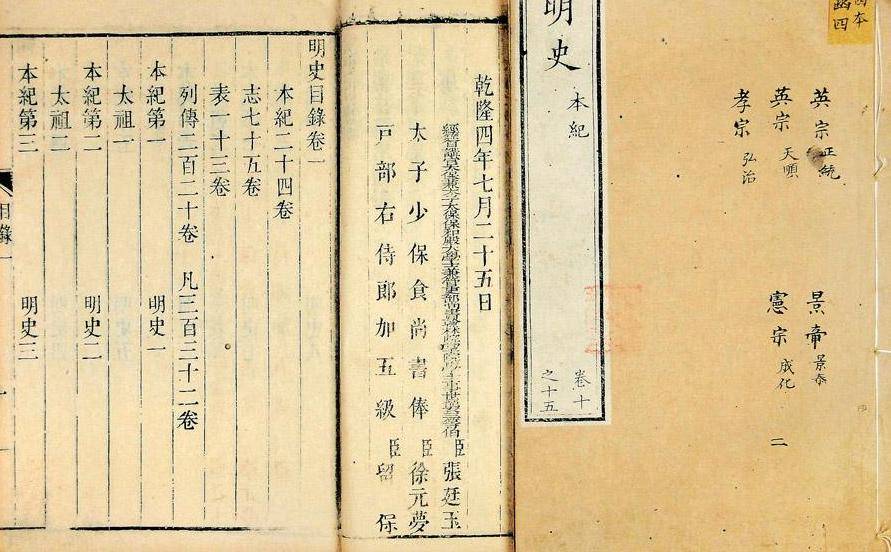 英宗 正統 景帝 景泰
英宗 天順 憲宗 成化
孝宗 弘治
二
明史 本紀 卷十之十五
乾隆四年七月二十五日
臣張廷玉
太子少保食尚書俸臣徐元夢
戶部右侍郎加五級臣留保
明史目錄卷一
本紀二十四卷
志七十五卷
表一十三卷
列傳二百二十卷 凡三百三十二卷
本紀第一 明史一
太祖一
本紀第二 明史二
太祖二
本紀第三 明史三
目錄一